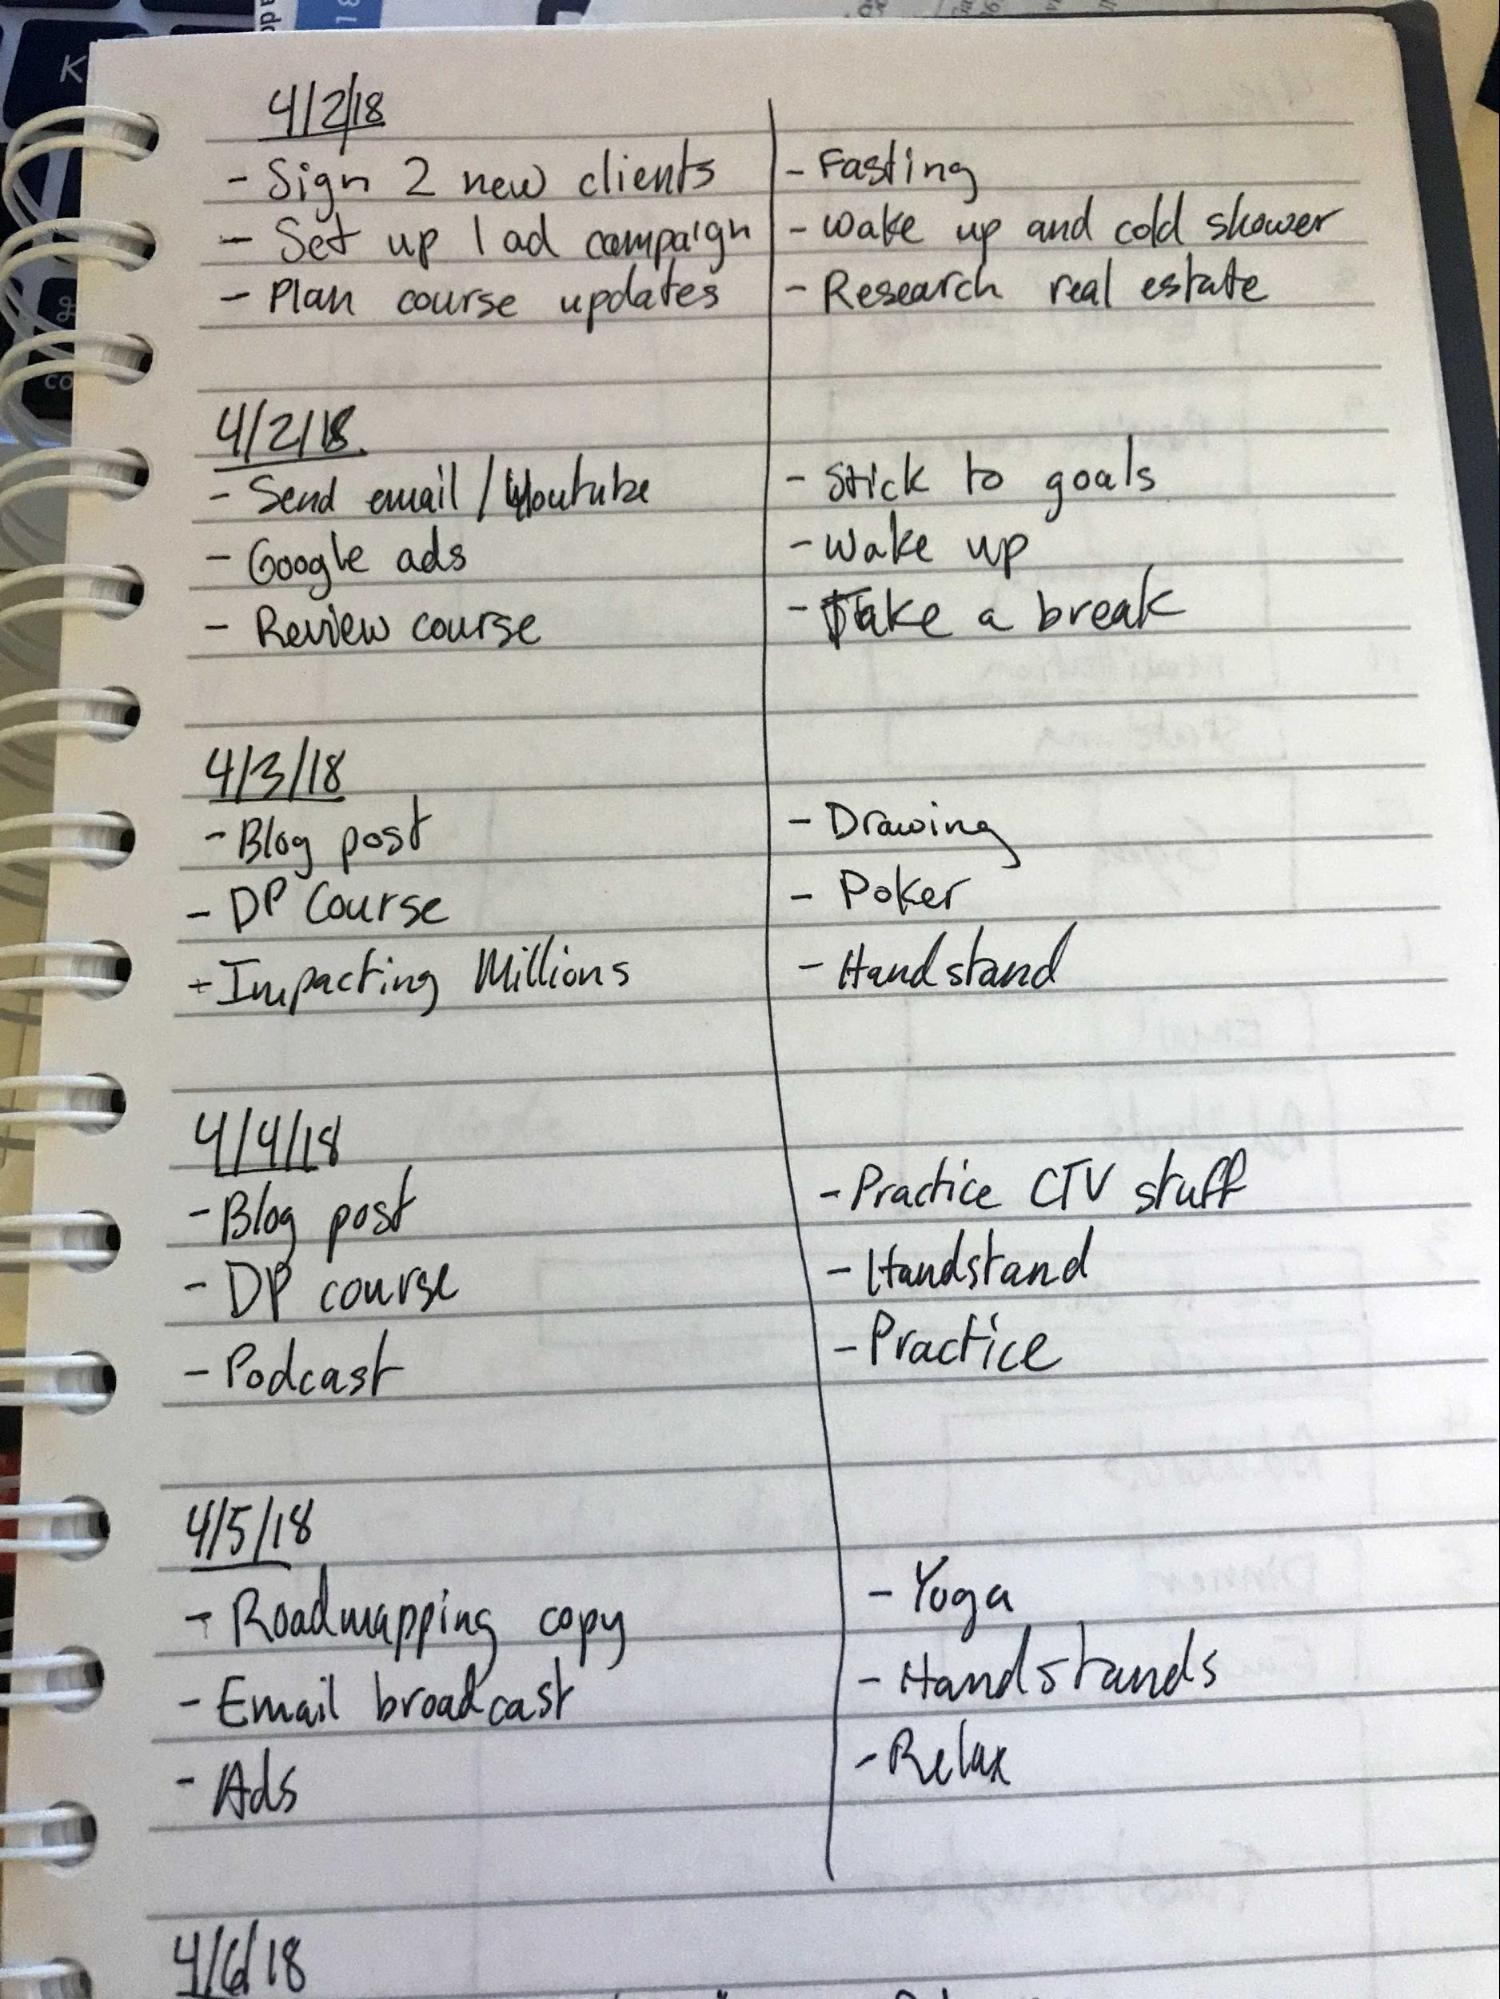 4/2/18
- Sign 2 new clients
- Set up 1 ad campaign
- Plan course updates
- Fasting
- Wake up and cold shower
- Research real estate
4/2/18
- Send email / Youtube
- Google ads
- Review course
- Stick to goals
- Wake up
- Take a break
4/3/18
- Blog post
- DP Course
- Impacting Millions
- Drawing
- Poker
- Handstand
4/4/18
- Blog post
- DP course
- Podcast
- Practice CTV stuff
- Handstand
- Practice
4/5/18
- Roadmapping copy
- Email broadcast
- Ads
- Yoga
- Handstands
- Relax
4/6/18